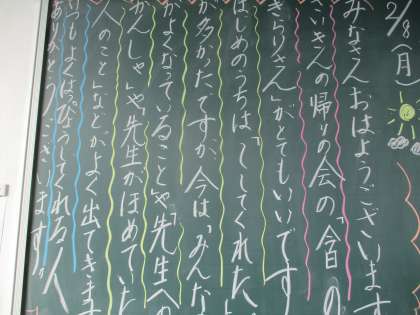 2/8(月)
みなさんおはようございます
さいきんの帰りの会の「今日の
きらりさん」がとてもいいです
はじめのうちは「〜してくれた
が多かたてすが、今は「みんな
がよくなっていること」や「先生への
かんしゃ」や「先生がほめていた
人のこと」などがよく出てきま
いつもよくはっぴょうしてくれる人
ありがとうございます。